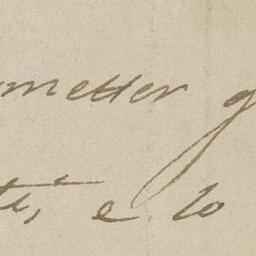 metter g
te, e lo